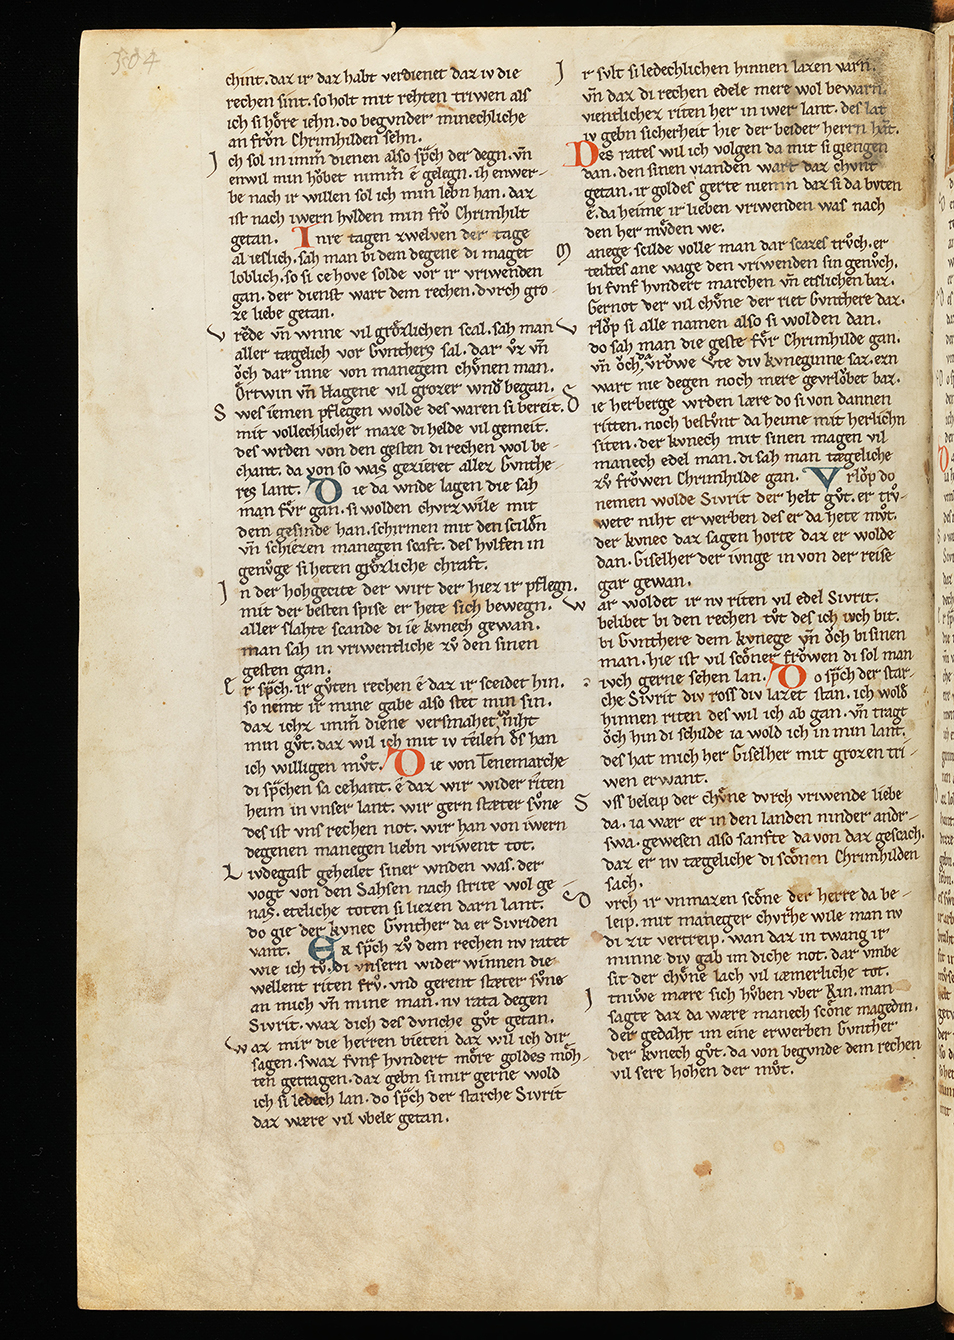 304
chint. daz ir daz habt verdienet daz iv die
rechen sint. so holt mit rehten triwen als
ich si hoͤre iehn. do begvnder minechliche
an froͮn Chrimhilden sehn.
Ich sol in imm̄ dienen also sp̄ch der degn. vn̄
enwil min hoͮbet nimm̄ e gelegn. ih enwer-
be nach ir willen sol ich min lebn han. daz
ist nach iwern hvlden min froͮ Chrimhilt
getan. Inre tagen zwelven der tage
al ieslich. sah man bi dem degene di maget
loblich. so si ce hove solde vor ir vriwenden
gan. der dienst wart dem rechen. dvrch gro-
ze liebe getan.
vreͮde vn̄ wnne vil groͤzlichen scal. sah man
aller tægelich vor Gvnthers sal. dar vͦz vn̄
oͮch dar inne von manegem choͤnen man.
Ortwin vn̄ Hagene vil grozer wnd͛ began.
Swes iemen pflegen wolde des waren si bereit.
mit vollechlicher maze di helde vil gemeit.
des wrden von den gesten di rechen wol be-
chant. da von so was gezieret allez Gvnthe-
res lant. Die da wnde lagen die sah
man fvͤr gan. si wolden chvrzwile mit
dem gesinde han. schirmen mit den scildn̄
vn̄ schiezen manegen scaft. des hvlfen in
genvͦge si heten groͤzliche chraft.
In der hohgecite der wirt der hiez ir pflegn.
mit der besten spise er hete sich bewegn.
aller slahte scande di ie kvnech gewan.
man sah in vriwentliche zvͦ den sinen
gesten gan.
Er sp̄ch. ir gvͦten rechen e daz ir sceidet hin.
so nemt ir mine gabe also stet min sin.
daz ichz imm̄ diene versmahet in niht
min gvͦt. daz wil ich mit iv teilen d͛s han
ich willigen mvͦt. Die von Tenemarche
di sp̄chen sa cehant. e daz wir wider riten
heim in vnser lant. wir gern stæter svͦne
des ist vns rechen not. wir han von iwern
degenen manegen liebn vriwent tot.
Livdegast geheilet siner wnden was. der
vogt von den Sahsen nach strite wol ge-
nas. eteliche toten si liezen darn lant.
do gie der kvnec Gvnther da er Sivriden
vant. Er sp̄ch zvͦ dem rechen nv ratet
wie ich tvͦ. di vnsern wider winnen die
wellent riten frvͦ. vnd gerent stæter svͦne
an mich vn̄ mine man. nv rata degen
Sivrit. waz dich des dvnche gvͦt getan.
Waz mir die herren bieten daz wil ich dir
sagen. swaz fvnf hvndert moͤre goldes moͤh-
ten getragen. daz gebn si mir gerne wold
ich si ledech lan. do sp̄ch der starche Sivrit
daz wære vil vbele getan.
Ir svlt si ledechlichen hinnen lazen varn.
vn̄ daz di rechen edele mere wol bewarn.
vientlichez riten her in iwer lant. des lat
iv gebn sicherheit hie der beider herrn hāt.
Des rates wil ich volgen da mit si giengen
dan. den sinen vianden wart daz chvnt
getan. ir goldes gerte niemn daz si da bvten
e. da heime ir lieben vriwenden was nach
den her mvͤden we.
Manege scilde volle man dar scazes trvͦch. er
teiltes ane wage den vriwenden sin genvͦch.
bi fvnf hvndert marchen vn̄ etslichen baz.
Gernot der vil chvͤne der riet Gvnthere daz.
Vrloͮp si alle namen also si wolden dan.
do sah man die geste fvͤr Chrimhilde gan.
vn̄ oͮch da vroͮwe vͦte div kvneginne saz. ezn
wart nie degen noch mere gevrloͮbet baz.
Die herberge wrden lære do si von dannen
ritten. noch bestvͦnt da heime mit herlichn
siten. der kvnech mit sinen magen vil
manech edel man. di sah man tægeliche
zvͦ froͮwen Chrimhilde gan. Vrloͮp do
nemen wolde Sivrit der helt gvͦt. er trvͦ-
wete niht er werben des er da hete mvͦt.
der kvnec daz sagen horte daz er wolde
dan. Giselher der ivnge in von der reise
gar gewan.
War woldet ir nv riten vil edel Sivrit.
belibet bi den rechen tvͦt des ich ivch bit.
bi Gvnthere dem kvnege vn̄ oͮch bi sinen
man. hie ist vil scoͤner froͮwen di sol man
ivch gerne sehen lan. Do sp̄ch der star-
che Sivrit div ross div lazet stan. ich wold͛
hinnen riten des wil ich ab gan. vn̄ tragt
oͮch hin di schilde ia wold ich in min lant.
des hat mich her Giselher mit grozen tri-
wen erwant.
Svss beleip der chvͤne dvrch vriwende liebe
da. ia wær er in den landen ninder andr-
swa. gewesen also sanfte da von daz gescach.
daz er nv tægeliche di scoͤnen Chrimhilden
sach.
Dvrch ir vnmazen scoͤne der herre da be-
leip. mit maneger chvrzhe wile man nv
di zit vertreip. wan daz in twang ir
minne div gab im diche not. dar vmbe
sit der chvͤne lach vil iæmerliche tot.
Itniwe mære sich hvͦben vber Rin. man
sagte daz da wære manech scoͤne magedin.
der gedaht im eine erwerben Gvnther
der kvnech gvͦt. da von begvnde dem rechen
vil sere hohen der mvͦt.